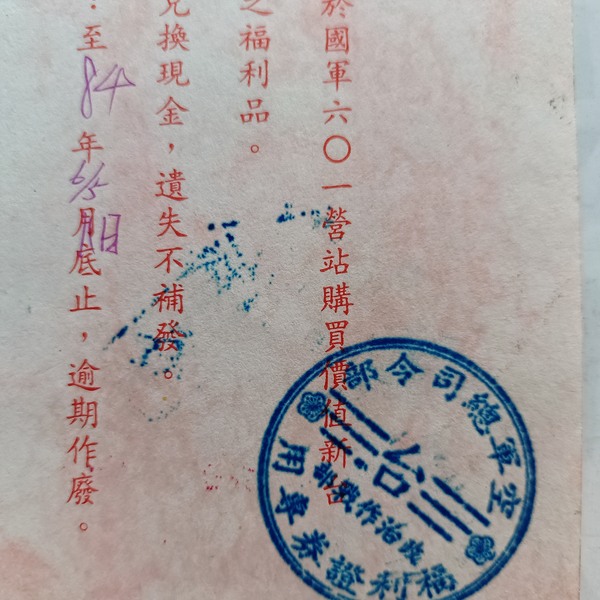 於國軍六〇一營站購買價值新台
之福利品。
兌換現金，遺失不補發。
：至84年6/5月日底止，逾期作廢。
空軍總司令部
政治作戰部
福利證券專用